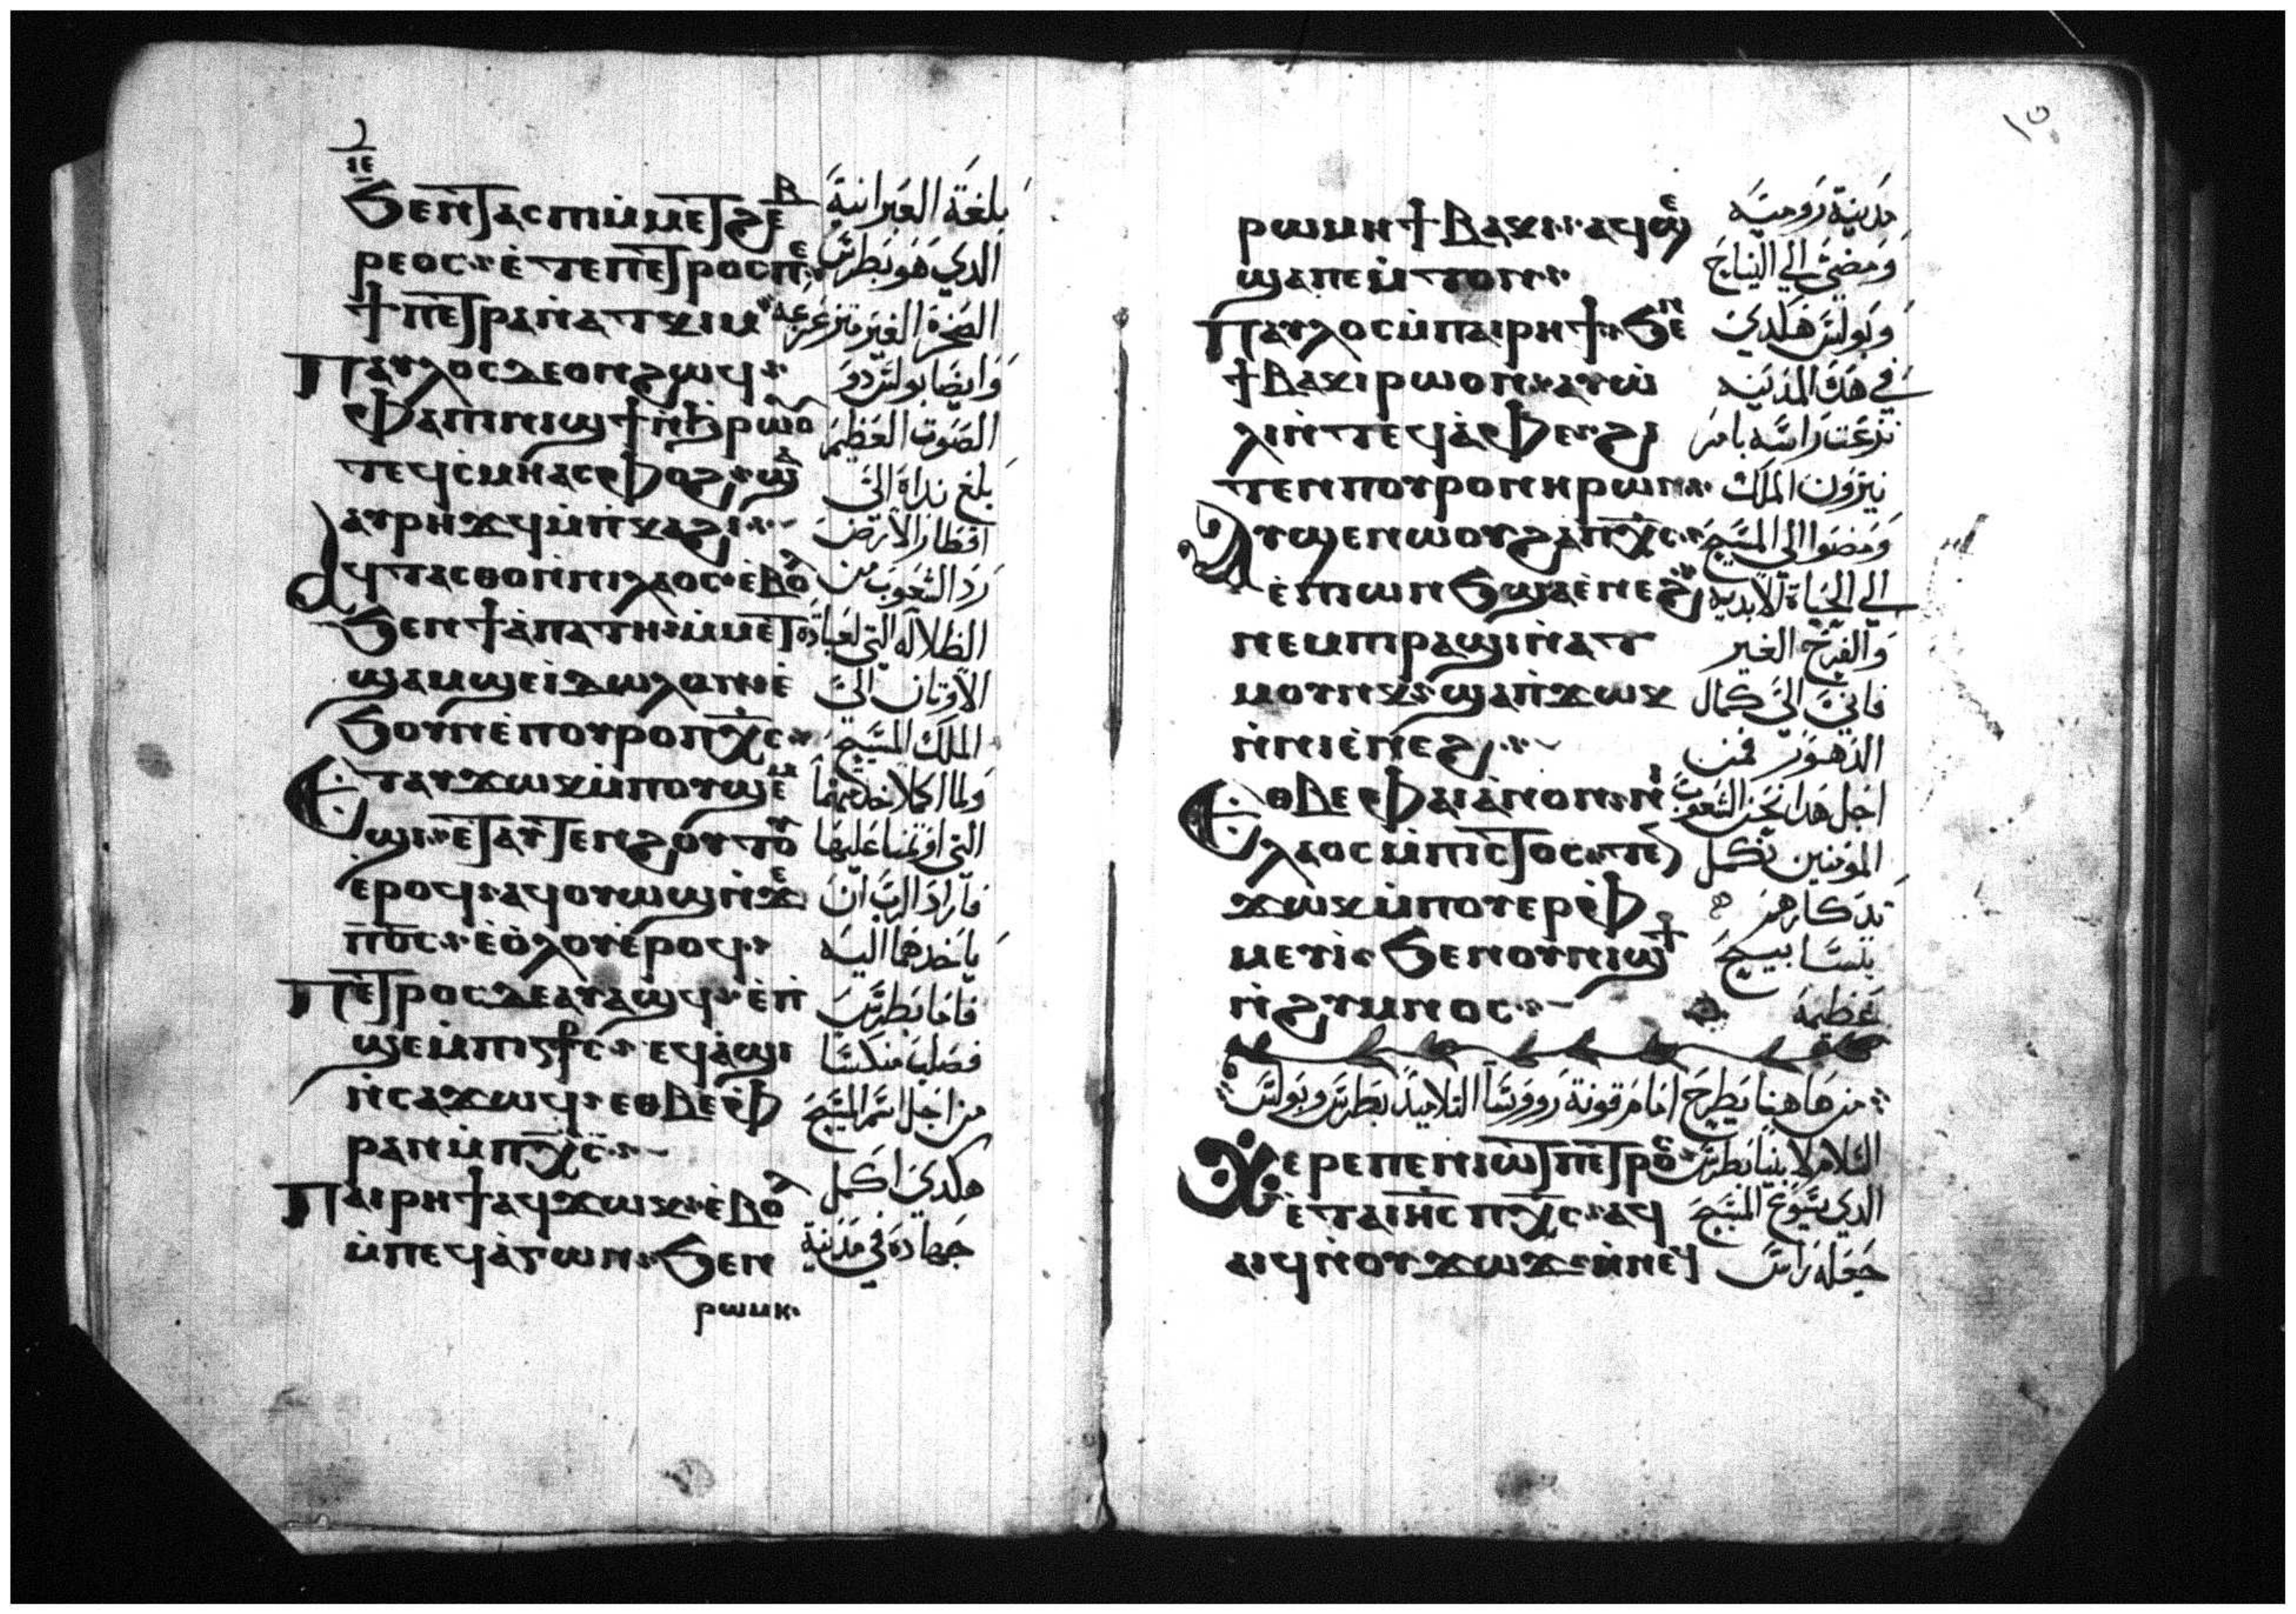 ⲓⲉ
ϧⲉⲛϯⲁⲥⲡⲓⲙⲙⲉⲧϩⲉⲃ بلغة العبرانية
ⲣⲉⲟⲥ ⲉⲧⲉⲡⲉⲧⲣⲟⲥⲡⲉ الدي هو بطرس
ϯⲡⲉⲧⲣⲁⲛⲁⲧⲕⲓⲙ الصخرة الغير متزعزعة
ⲡⲁⲩⲗⲟⲥⲇⲉⲟⲛϩⲱϥ وايضا بولس دو
ⲫⲁϯⲛⲓϣϯⲛϧⲣⲱⲟⲩ الصوت العظيم
ⲧⲉϥⲥⲙⲏⲁⲥⲫⲟϩϣⲁ بلغ نداة الى
ⲁⲩⲣⲏϫϥⲙⲡⲕⲁϩⲓ اقطار الارض
ⲁϥⲧⲁⲥⲑⲟⲛⲛⲓⲗⲁⲟⲥⲉⲃⲟⲗ رد الشعوب من
ϧⲉⲛϯⲁⲡⲁⲧⲏⲙⲙⲉⲧ الظلالة التي لعبادة
ϣⲁⲙϣⲉⲓⲇⲱⲗⲟⲛⲉ الاوتان الى
ϧⲟⲩⲛⲉⲡⲟⲩⲣⲟⲡⲭⲥ الملك المسيح
ⲉⲧⲁⲩϫⲱⲕⲙⲡⲟⲩϣⲉⲙ ولما اكملا خدمتهما
ϣⲓⲉⲧⲁⲩⲧⲉⲛϩⲟⲩⲧⲟⲩ التي اوتمنا عليها
ⲉⲣⲟϥⲁϥⲟⲩⲱϣⲛϫⲉ فاراد الرب ان
ⲡⲟⲥⲉⲟⲗⲟⲩⲉⲣⲟϥ ياخدهما اليه
ⲡⲉⲧⲣⲟⲥⲇⲉⲁⲩⲁϣϥⲉⲡ فاما بطرس
ϣⲉⲙⲡⲓⲥⲧⲣⲥ ⲉϥⲁϣⲓ فصلب منكسا
ⲛⲥⲁϫⲱϥⲉⲑⲃⲉⲫ من اجل اسم المسيح
ⲣⲁⲛⲙⲡⲭⲥ
ⲡⲁⲓⲣⲏϯⲁϥϫⲱⲕⲉⲃⲟⲗ هكدي اكمل
ⲙⲡⲉϥⲁⲅⲱⲛϧⲉⲛ جهاده في مدنية
ⲣⲱⲙⲏ
١٥
ⲣⲱⲙⲏϯⲃⲁⲕⲓⲁϥϣⲉ مدينة رومية
ϣⲁⲡⲉⲙⲧⲟⲛ ومضى الي النياح
ⲡⲁⲩⲗⲟⲥⲙⲡⲁⲓⲣⲏϯϧⲉⲛ وبولس هكدي
ϯⲃⲁⲕⲓⲣⲱⲟⲛⲁⲩⲱ في هدة المدينه
ⲗⲓⲛⲧⲉϥⲁⲫⲉϩⲓ نزعت راسه بامر
ⲧⲉⲛⲡⲟⲩⲣⲟⲛⲏⲣⲱⲛ نيرون الملك
ⲁⲩϣⲉⲛⲱⲟⲩϩⲁⲡⲭⲥ ومضوا الي المسيح
ⲉⲡⲱⲛϧϣⲁⲉⲛⲉϩ الي الحياة الابدية
ⲛⲉⲙⲡⲣⲁϣⲓⲛⲁⲧ والفرح الغير
ⲙⲟⲩⲛⲕϣⲁⲡϫⲱⲕ فاني الي كمال
ⲛⲛⲓⲉⲛⲉϩ الدهور فمن
ⲉⲑⲃⲉⲫⲁⲓⲁⲛⲟⲛⲛⲓ اجل هدا نحن الشعوب
ⲗⲁⲟⲥⲙⲡⲓⲥⲧⲟⲥ المومنين نكمل
ϫⲱⲕⲙⲡⲟⲩⲉⲣⲫ تدكارهم
ⲙⲉⲩⲓϧⲉⲛⲟⲩⲛⲓϣϯ بتسابيح
ⲛϩⲩⲙⲛⲟⲥ عظيمه
من هاهنا يطرح امام قونة روسا التلاميد بطرس وبولس
ⲭⲉⲣⲉⲡⲉⲛⲓⲱⲧⲡⲉⲧⲣⲟⲥ السلام لابينا بطرس
ⲉⲧⲁⲓⲏⲥⲡⲭⲥⲁϥ الدي يسوع المسيح
ⲁⲓϥⲛⲟⲩϫⲱϫⲛⲛⲉϥ جعله راس